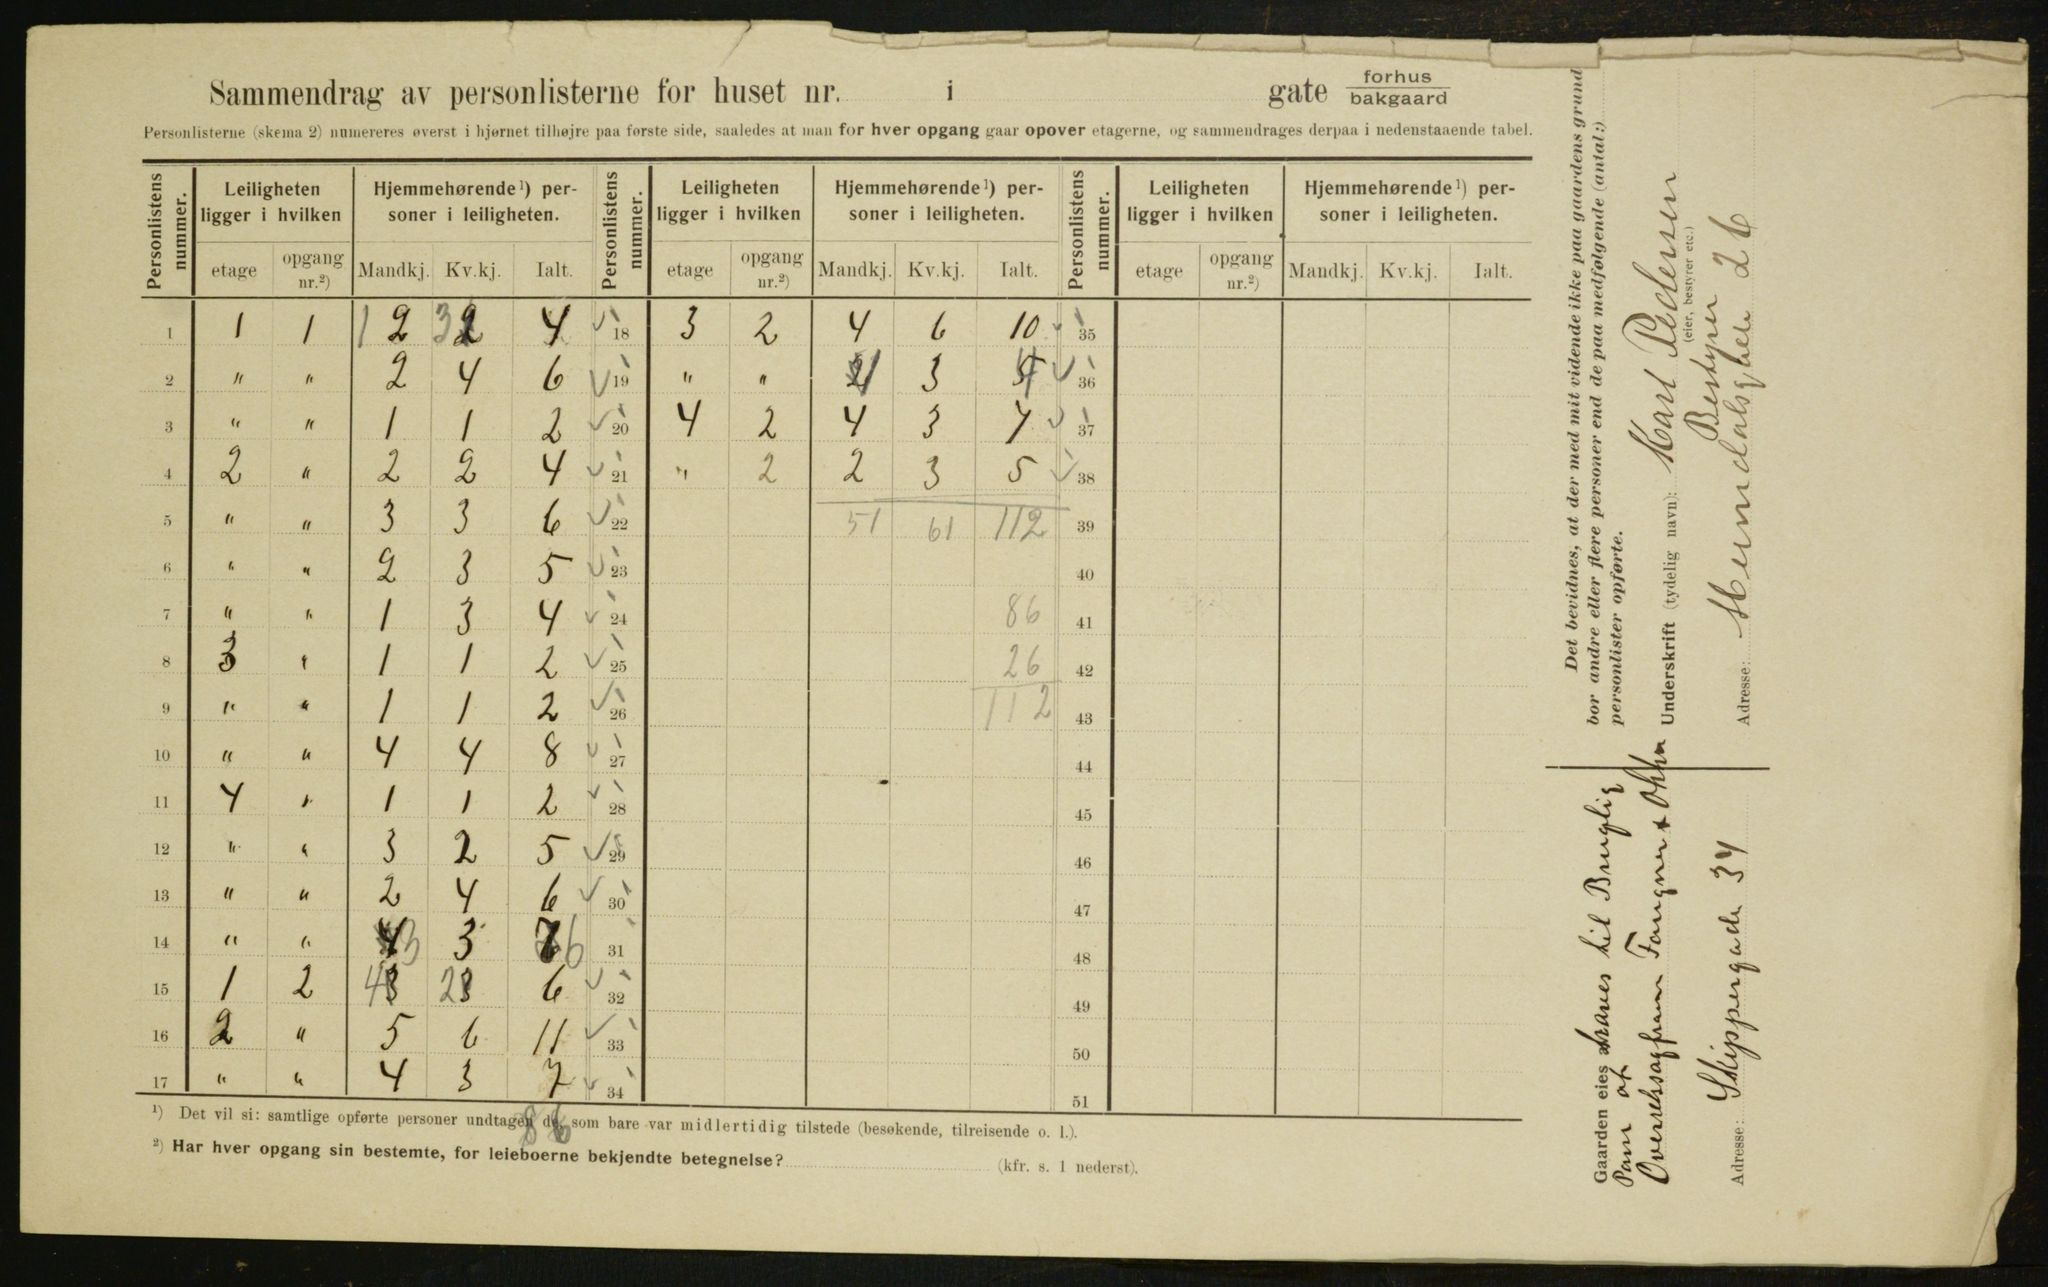 Sammendrag av personlisterne for huset nr. i gate forhus bakgaard
Personlisterne (skema 2) numereres øverst i hjørnet tilhøjre paa første side, saaledes at man for hver opgang gaar opover etagerne, og sammendrages derpaa i nedenstaaende tabel.
Personlistens nummer. Leiligheten ligger i hvilken Hjemmehørende¹) personer i leiligheten. Personlistens nummer. Leiligheten ligger i hvilken Hjemmehørende¹) personer i leiligheten. Personlistens nummer. Leiligheten ligger i hvilken Hjemmehørende¹) personer i leiligheten.
etage opgang nr.²) Mandkj. Kv.kj. Ialt. etage opgang nr.²) Mandkj. Kv.kj. Ialt. etage opgang nr.²) Mandkj. Kv.kj. Ialt.
1 1 1 1 2 3 2 4 ✓ 18 3 2 4 6 10 ✓ 35
2 " " 2 4 6 ✓ 19 " " 1 3 4 ✓ 36
3 " " 1 1 2 ✓ 20 4 2 4 3 7 ✓ 37
4 2 " 2 2 4 ✓ 21 " 2 2 3 5 ✓ 38
5 " " 3 3 6 ✓ 22 51 61 112 39
6 " " 2 3 5 ✓ 23 40
7 " " 1 3 4 ✓ 24 86 41
8 3 " 1 1 2 ✓ 25 26 42
9 " " 1 1 2 ✓ 26 112 43
10 " " 4 4 8 ✓ 27 44
11 4 " 1 1 2 ✓ 28 45
12 " " 3 2 5 ✓ 29 46
13 " " 2 4 6 ✓ 30 47
14 " " 4 3 3 7 6 31 48
15 1 2 4 3 2 3 6 ✓ 32 49
16 2 " 5 6 11 ✓ 33 50
17 " " 4 3 7 ✓ 34 51
86
¹) Det vil si: samtlige opførte personer undtagen de, som bare var midlertidig tilstede (besøkende, tilreisende o. l.).
²) Har hver opgang sin bestemte, for leieboerne bekjendte betegnelse? (kfr. s. 1 nederst).
Det bevidnes, at der med mit vidende ikke paa gaardens grund
bor andre eller flere personer end de paa medfølgende (antal:)
personlister opførte.
Underskrift (tydelig navn): Karl Pedersen
(eier, bestyrer etc.)
Bestyrer
Adresse: 26
Gaarden eies av til
Overretssagfører
Adresse: Skippergade 34